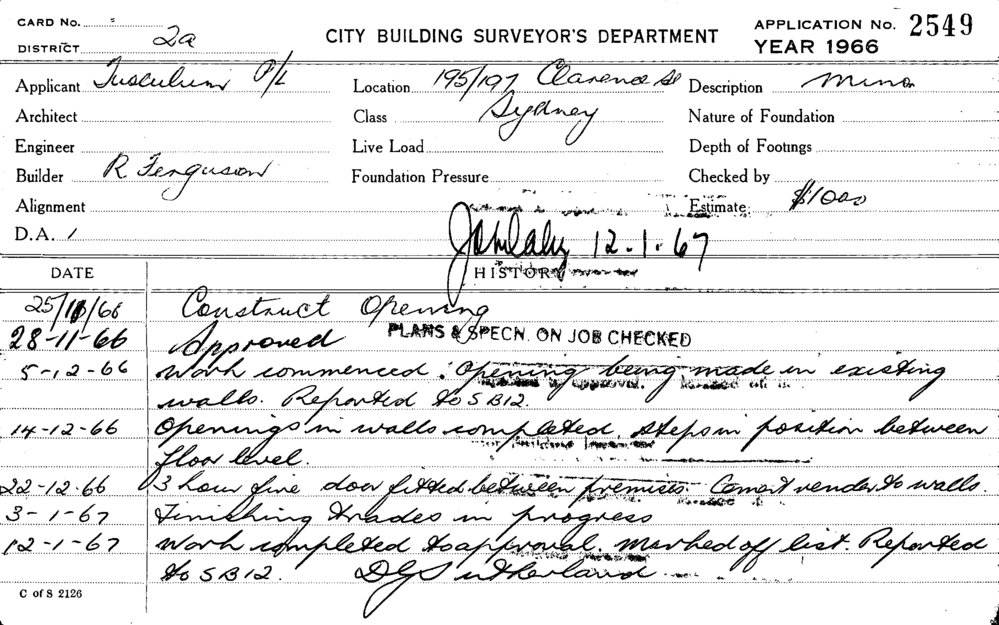 CARD No.
DISTRICT 2a
CITY BUILDING SURVEYOR'S DEPARTMENT
APPLICATION No. 2549
YEAR 1966
Applicant Tusculum P/L Location 195/197 Clarence St Description Minor
Architect Class Sydney Nature of Foundation
Engineer Live Load Depth of Footings
Builder R Ferguson Foundation Pressure Checked by
Alignment Estimate $1000
D.A. / 12.1.67
HISTORY
DATE
25/10/66 Construct Opening
28-11-66 Approved PLANS & SPECN. ON JOB CHECKED
5-12-66 Work commenced. Opening being made in existing
walls. Reported to SB12.
14-12-66 Openings in walls completed, steps in position between
floor level.
22-12-66 3 hour fire door fitted between premises. Cement render to walls.
3-1-67 Finishing trades in progress
12-1-67 Work completed to approval. Marked off list. Reported
to SB12. DG Sutherland
C of S 2126